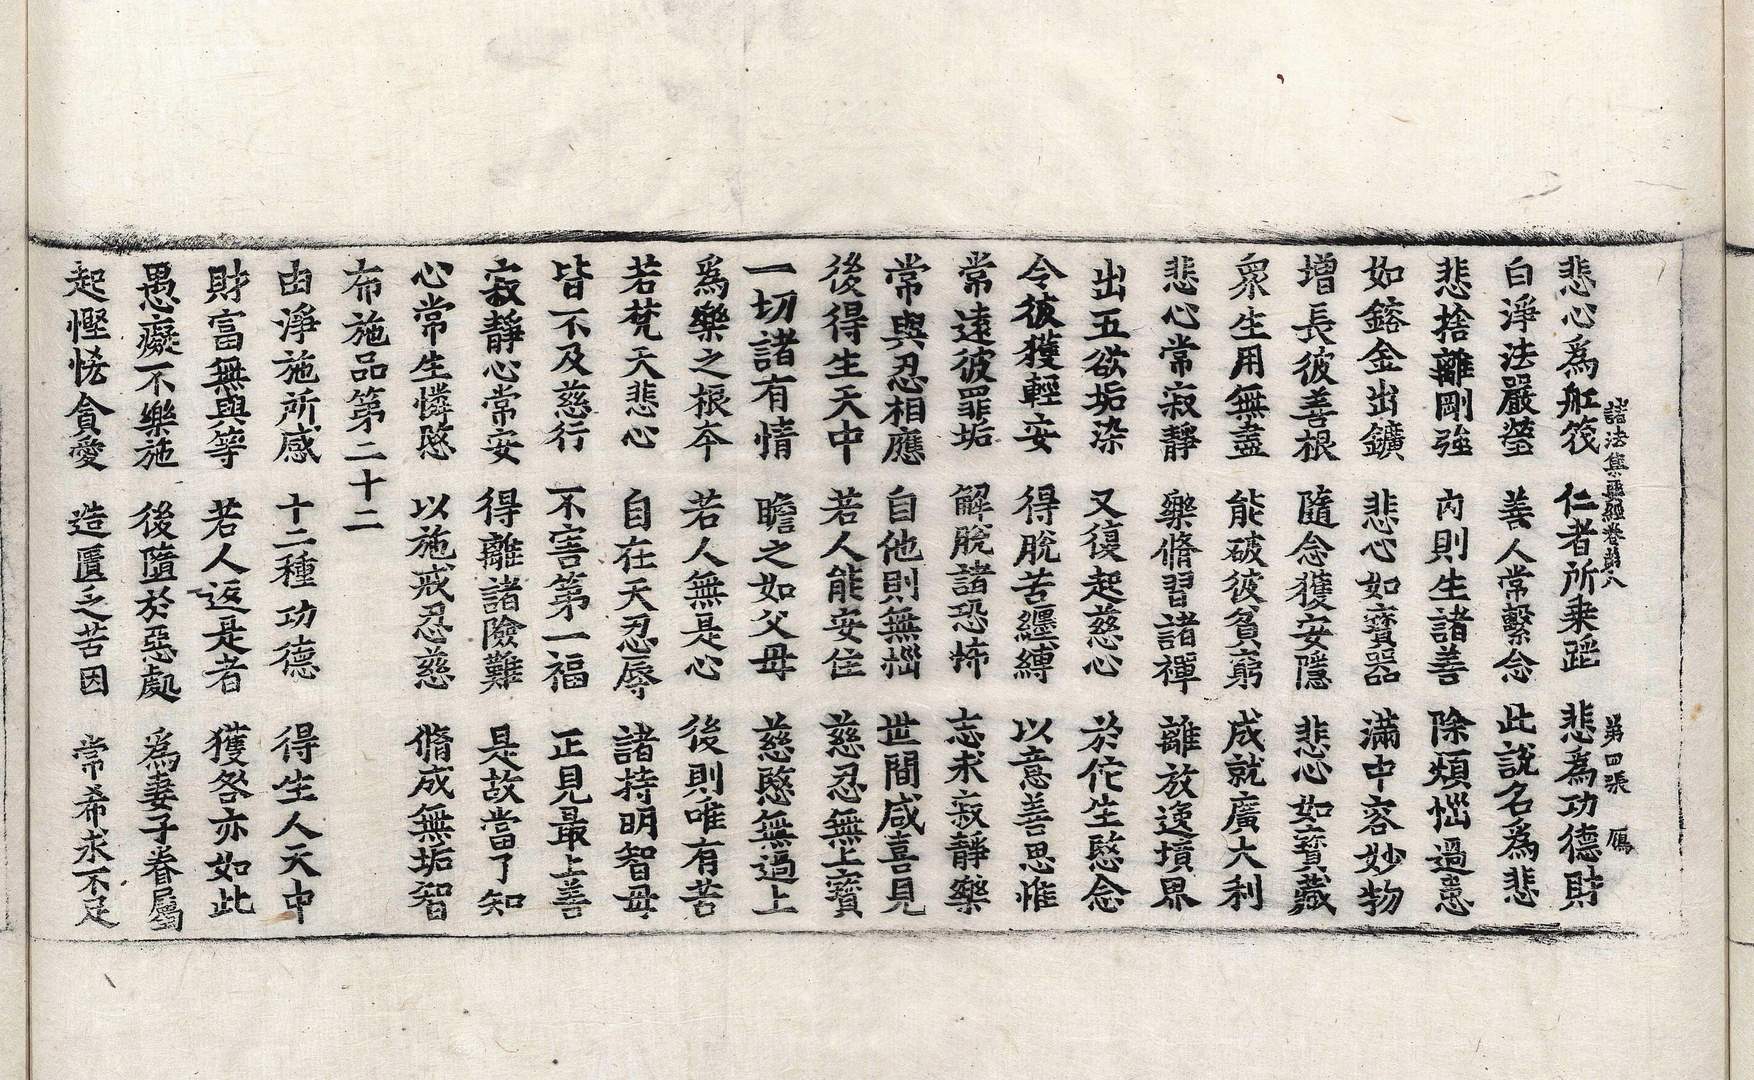 諸法集要經卷第八　第四張　鴈
悲心爲舡筏　仁者所乗蹈　悲爲功德財
白淨法嚴瑩　善人常繫念　此說名爲悲
悲捨離剛強　內則生諸善　除煩惱過患
如鎔金出鑛　悲心如寶器　滿中容妙物
增長彼善根　隨念獲安隱　悲心如寶藏
衆生用無盡　能破彼貧窮　成就廣大利
悲心常寂靜　樂脩習諸禪　離放逸境界
出五欲垢染　又復起慈心　於佗生慜念
令彼獲輕安　得脫苦纏縛　以意善思惟
常遠彼罪垢　解脫諸恐怖　志求寂靜樂
常與忍相應　自他則無惱　世間咸喜見
後得生天中　若人能安住　慈忍無上寶
一切諸有情　瞻之如父母　慈慜無過上
爲樂之根本　若人無是心　後則唯有苦
若梵天悲心　自在天忍辱　諸持明智母
皆不及慈行　不害第一福　正見最上善
寂靜心常安　得離諸險難　是故當了知
心常生憐慜　以施戒忍慈　脩成無垢智
布施品第二十二
由淨施所感　十二種功德　得生人天中
財富無與等　若人返是者　獲咎亦如此
愚癡不樂施　後墮於惡處　爲妻子眷屬
起慳悋貪愛　造匱乏苦因　常希求不足